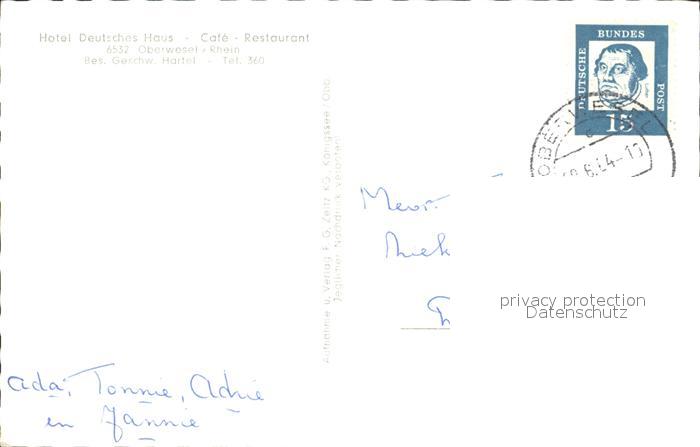 Hotel Deutsches Haus - Café - Restaurant
6532 Oberwesel / Rhein
Bes. Geschw. Hartel - Tel. 360
DEUTSCHE
BUNDES
POST
Luther
15
Aufnahme u. Verlag F. G. Zeitz KG., Königssee/Obb.
Jeglicher Nachdruck verboten!
privacy protection
Datenschutz
Ada, Tonnie, Adrie
en Jannie